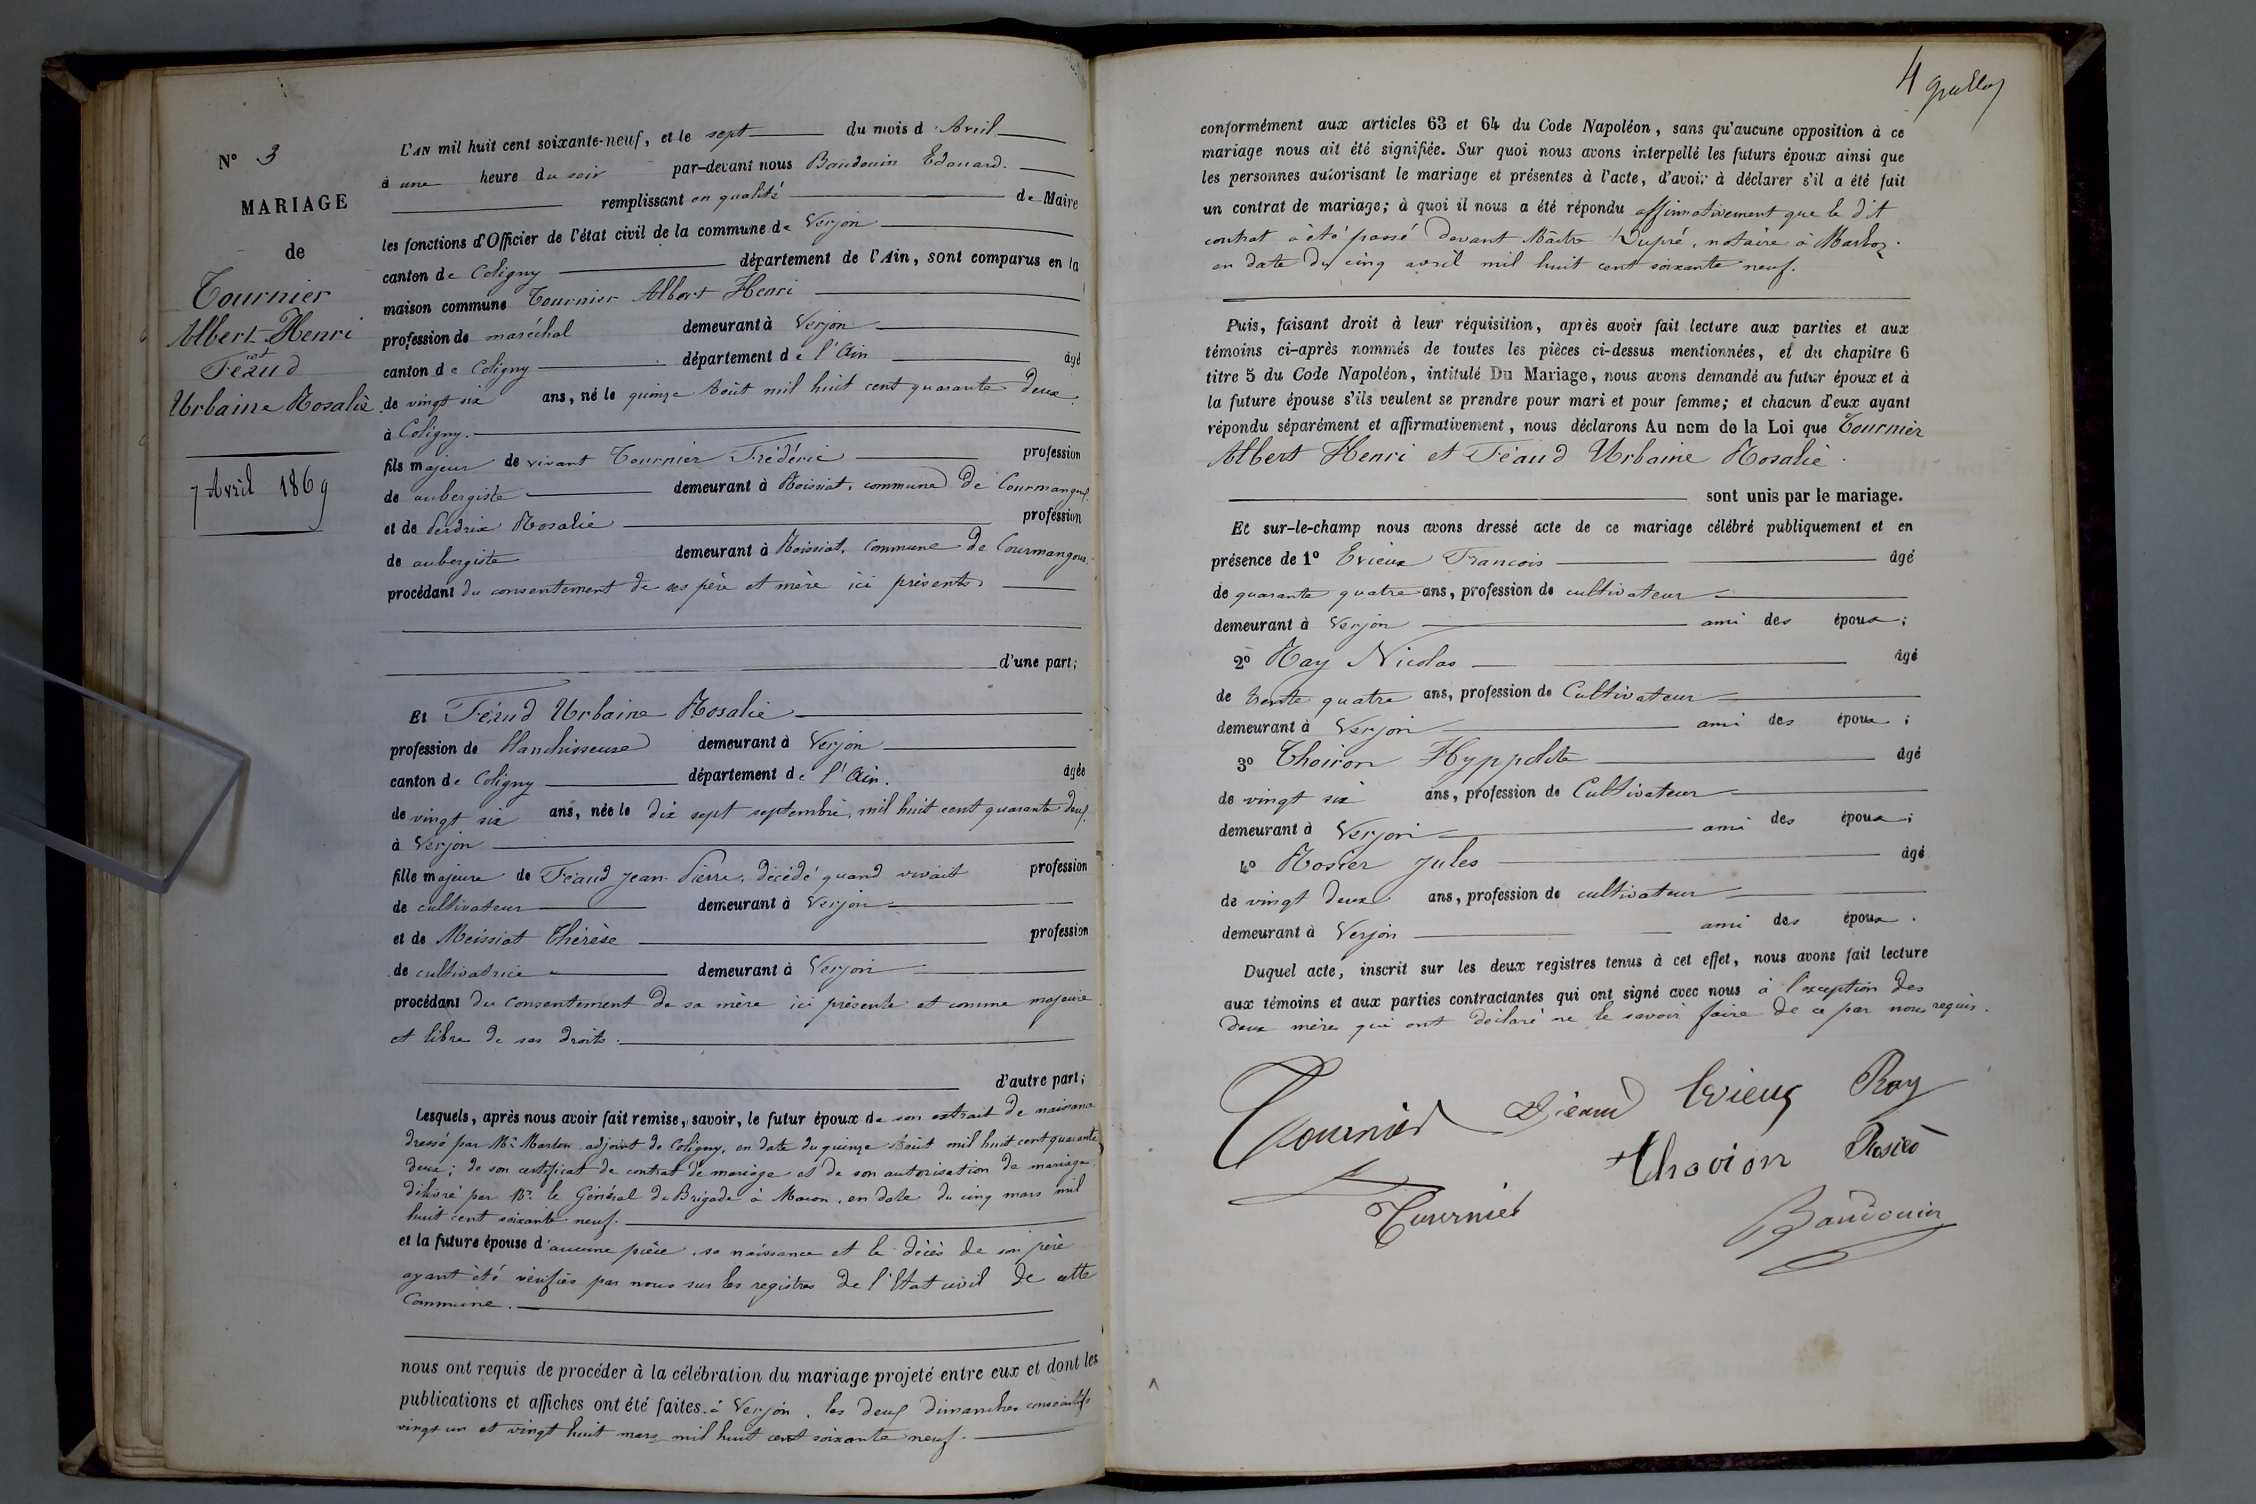 N° 3
MARIAGE
de
Tournier
Albert Henri
et
Féaud
Urbaine Rosalie
7 Avril 1869
L'AN mil huit cent soixante-neuf, et le sept du mois d'Avril
à une heure du soir par-devant nous Baudouin Edouard.
remplissant en qualité de Maire
les fonctions d'Officier de l'état civil de la commune de Verjon
canton de Coligny département de l'Ain, sont comparus en la
maison commune Tournier Albert Henri
profession de maréchal demeurant à Verjon
canton de Coligny département de l'Ain âgé
de vingt six ans, né le quinze Août mil huit cent quarante deux.
à Coligny.
fils majeur de vivant Tournier Frédéric profession
de aubergiste demeurant à Roissiat, commune de Courmangoux
et de Perdrix Rosalie profession
de aubergiste demeurant à Roissiat, commune de Courmangoux.
procédant du consentement de ses père et mère ici présents
d'une part;
Et Féaud Urbaine Rosalie
profession de blanchisseuse demeurant à Verjon
canton de Coligny département de l'Ain. âgée
de vingt six ans, née le dix sept septembre, mil huit cent quarante deux
à Verjon
fille majeure de Féaud Jean-Pierre, décédé quand vivait profession
de cultivateur demeurant à Verjon
et de Meissiat Thérèse profession
de cultivatrice demeurant à Verjon
procédant du consentement de sa mère ici présente et comme majeure
et libre de ses droits.
d'autre part;
Lesquels, après nous avoir fait remise, savoir, le futur époux de son extrait de naissance
dressé par Mr. adjoint de Coligny, en date du quinze Août mil huit cent quarante
deux; de son certificat de contrat de mariage et de son autorisation de mariage
délivré par Mr. le Général de Brigade à Macon, en date du cinq mars mil
huit cent soixante neuf.
et la future épouse d'aucune pièce, sa naissance et le décès de son père
ayant été vérifiés par nous sur les registres de l'Etat civil de cette
Commune.
nous ont requis de procéder à la célébration du mariage projeté entre eux et dont les
publications et affiches ont été faites à Verjon, les deux dimanches consécutifs
vingt un et vingt huit mars mil huit cent soixante neuf.
4
conformément aux articles 63 et 64 du Code Napoléon, sans qu'aucune opposition à ce
mariage nous ait été signifiée. Sur quoi nous avons interpellé les futurs époux ainsi que
les personnes autorisant le mariage et présentes à l'acte, d'avoir à déclarer s'il a été fait
un contrat de mariage; à quoi il nous a été répondu affirmativement que le dit
contrat a été passé devant Maître Dupré, notaire à Marboz.
en date du cinq avril mil huit cent soixante neuf.
Puis, faisant droit à leur réquisition, après avoir fait lecture aux parties et aux
témoins ci-après nommés de toutes les pièces ci-dessus mentionnées, et du chapitre 6
titre 5 du Code Napoléon, intitulé Du Mariage, nous avons demandé au futur époux et à
la future épouse s'ils veulent se prendre pour mari et pour femme; et chacun d'eux ayant
répondu séparément et affirmativement, nous déclarons Au nom de la Loi que Tournier
Albert Henri et Féaud Urbaine Rosalie.
sont unis par le mariage.
Et sur-le-champ nous avons dressé acte de ce mariage célébré publiquement et en
présence de 1° Evieux Francois âgé
de quarante quatre ans, profession de cultivateur
demeurant à Verjon ami des époux;
2° Ray Nicolas âgé
de trente quatre ans, profession de Cultivateur
demeurant à Verjon ami des époux;
3° Thoiron Hyppolite âgé
de vingt six ans, profession de Cultivateur
demeurant à Verjon ami des époux;
4° Rosier Jules âgé
de vingt deux ans, profession de cultivateur
demeurant à Verjon ami des époux.
Duquel acte, inscrit sur les deux registres tenus à cet effet, nous avons fait lecture
aux témoins et aux parties contractantes qui ont signé avec nous à l'exception des
deux mères qui ont déclaré ne le savoir faire de ce par nous requis.
Tournier Féaud Evieux Ray
Thoiron Rosier
Tournier Baudouin